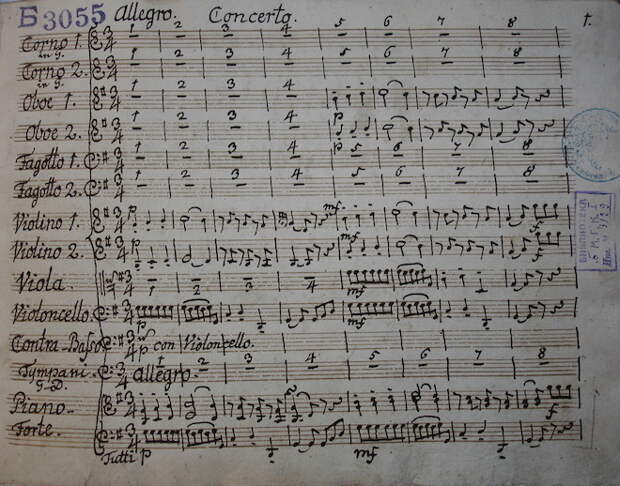 Б3055 Allegro. Concerto. 1.
1 2 3 4 5 6 7 8
Corno 1.
in g.
1 2 3 4 5 6 7 8
Corno 2.
in g.
1 2 3 4
Oboe 1.
p
1 2 3 4
Oboe 2.
p
1 2 3 4 5 6 7 8
Fagotto 1.
1 2 3 4 5 6 7 8
Fagotto 2.
Violino 1. p mf f
Violino 2. p mf f
Viola. 1 2 3 4 mf
Violoncello. p mf
Contra-Basso p con Violoncello.
Tympani. 1 2 3 4 5 6 7 8
G-D.
Allegro
Piano- f
Forte.
Tutti p mf f